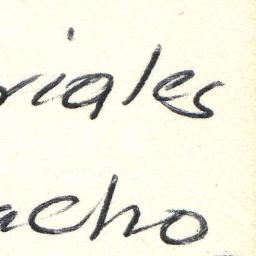 riales
acho